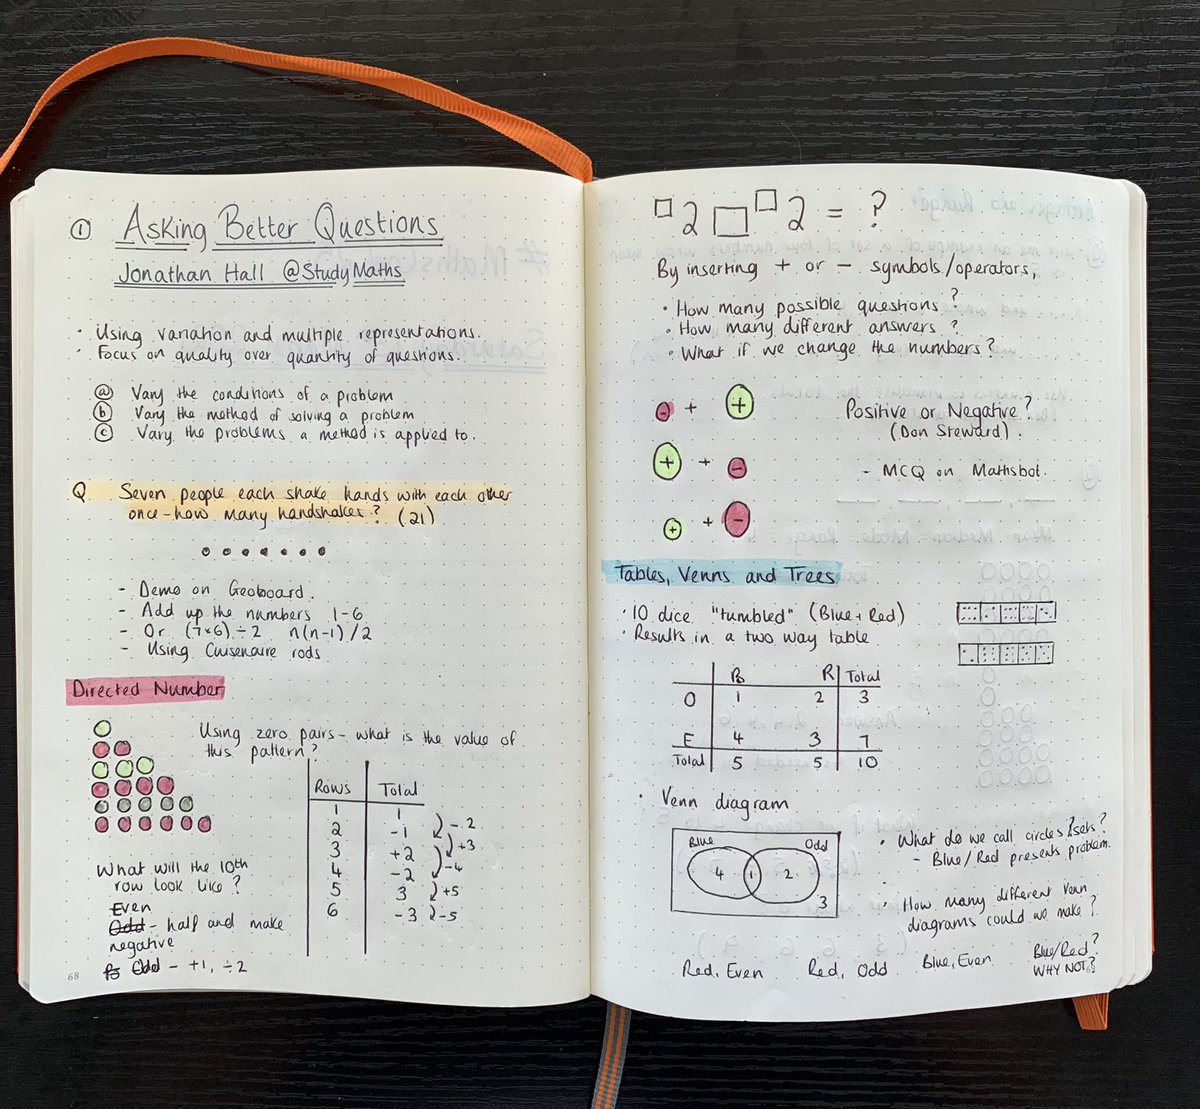 ① Asking Better Questions
Jonathan Hall @StudyMaths
· Using variation and multiple representations.
· Focus on quality over quantity of questions.
ⓐ Vary the conditions of a problem
ⓑ Vary the method of solving a problem
ⓒ Vary the problems a method is applied to.
Q Seven people each shake hands with each other
once - how many handshakes? (21)
- Demo on Geoboard.
- Add up the numbers 1-6
- Or (7×6)÷2 n(n-1)/2
- Using Cuisenaire rods
Directed Number
Using zero pairs - what is the value of
this pattern?
Rows Total
1 1
2 -1 -2
3 +2 +3
4 -2 -4
5 3 +5
6 -3 -5
What will the 10th
row look like?
Even
Odd - half and make
negative
Odd - +1, ÷2
68
□2 □ □2 = ?
By inserting + or - symbols/operators,
· How many possible questions?
· How many different answers?
· What if we change the numbers?
- + +
+ + -
+ + -
Positive or Negative?
(Don Steward).
- MCQ on Mathsbot.
Tables, Venns and Trees
· 10 dice "tumbled" (Blue + Red)
· Results in a two way table
B R Total
O 1 2 3
E 4 3 7
Total 5 5 10
· Venn diagram
Blue Odd
4 1 2
3
· What do we call circles? sets?
- Blue/Red presents problem.
· How many different Venn
diagrams could we make?
Red, Even Red, Odd Blue, Even Blue/Red?
WHY NOT?